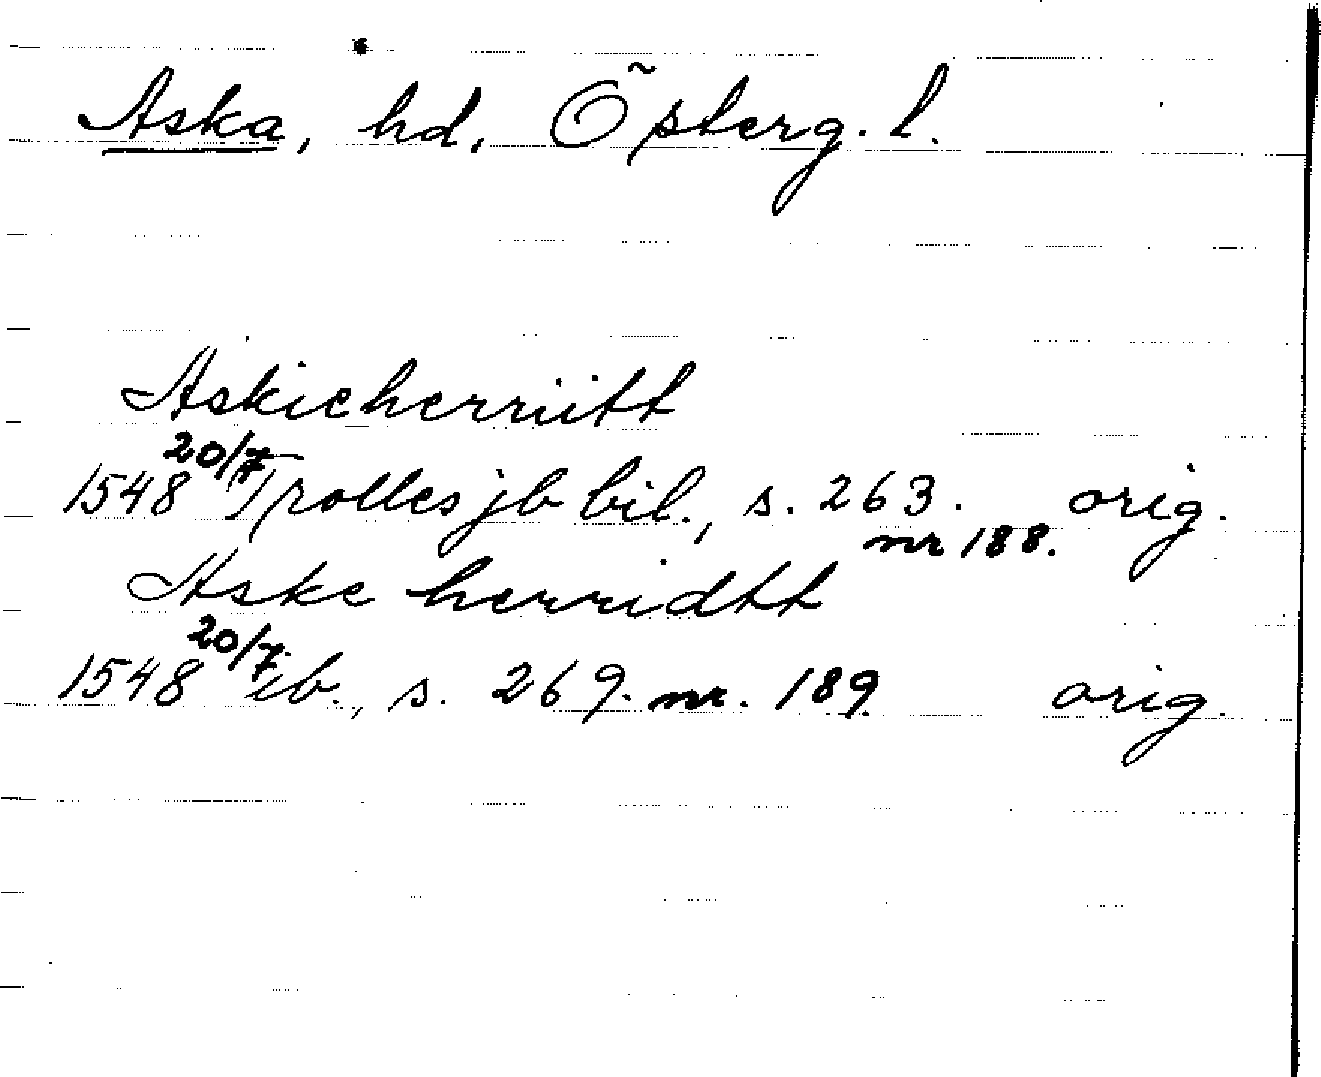 Aska, hd, Österg. l.
Askieherriitt
1548 20/7 Trolles jb bil., s. 263. orig.
nr 188.
Aske herridtt
1548 20/7 ib., s. 269. nr. 189 orig.